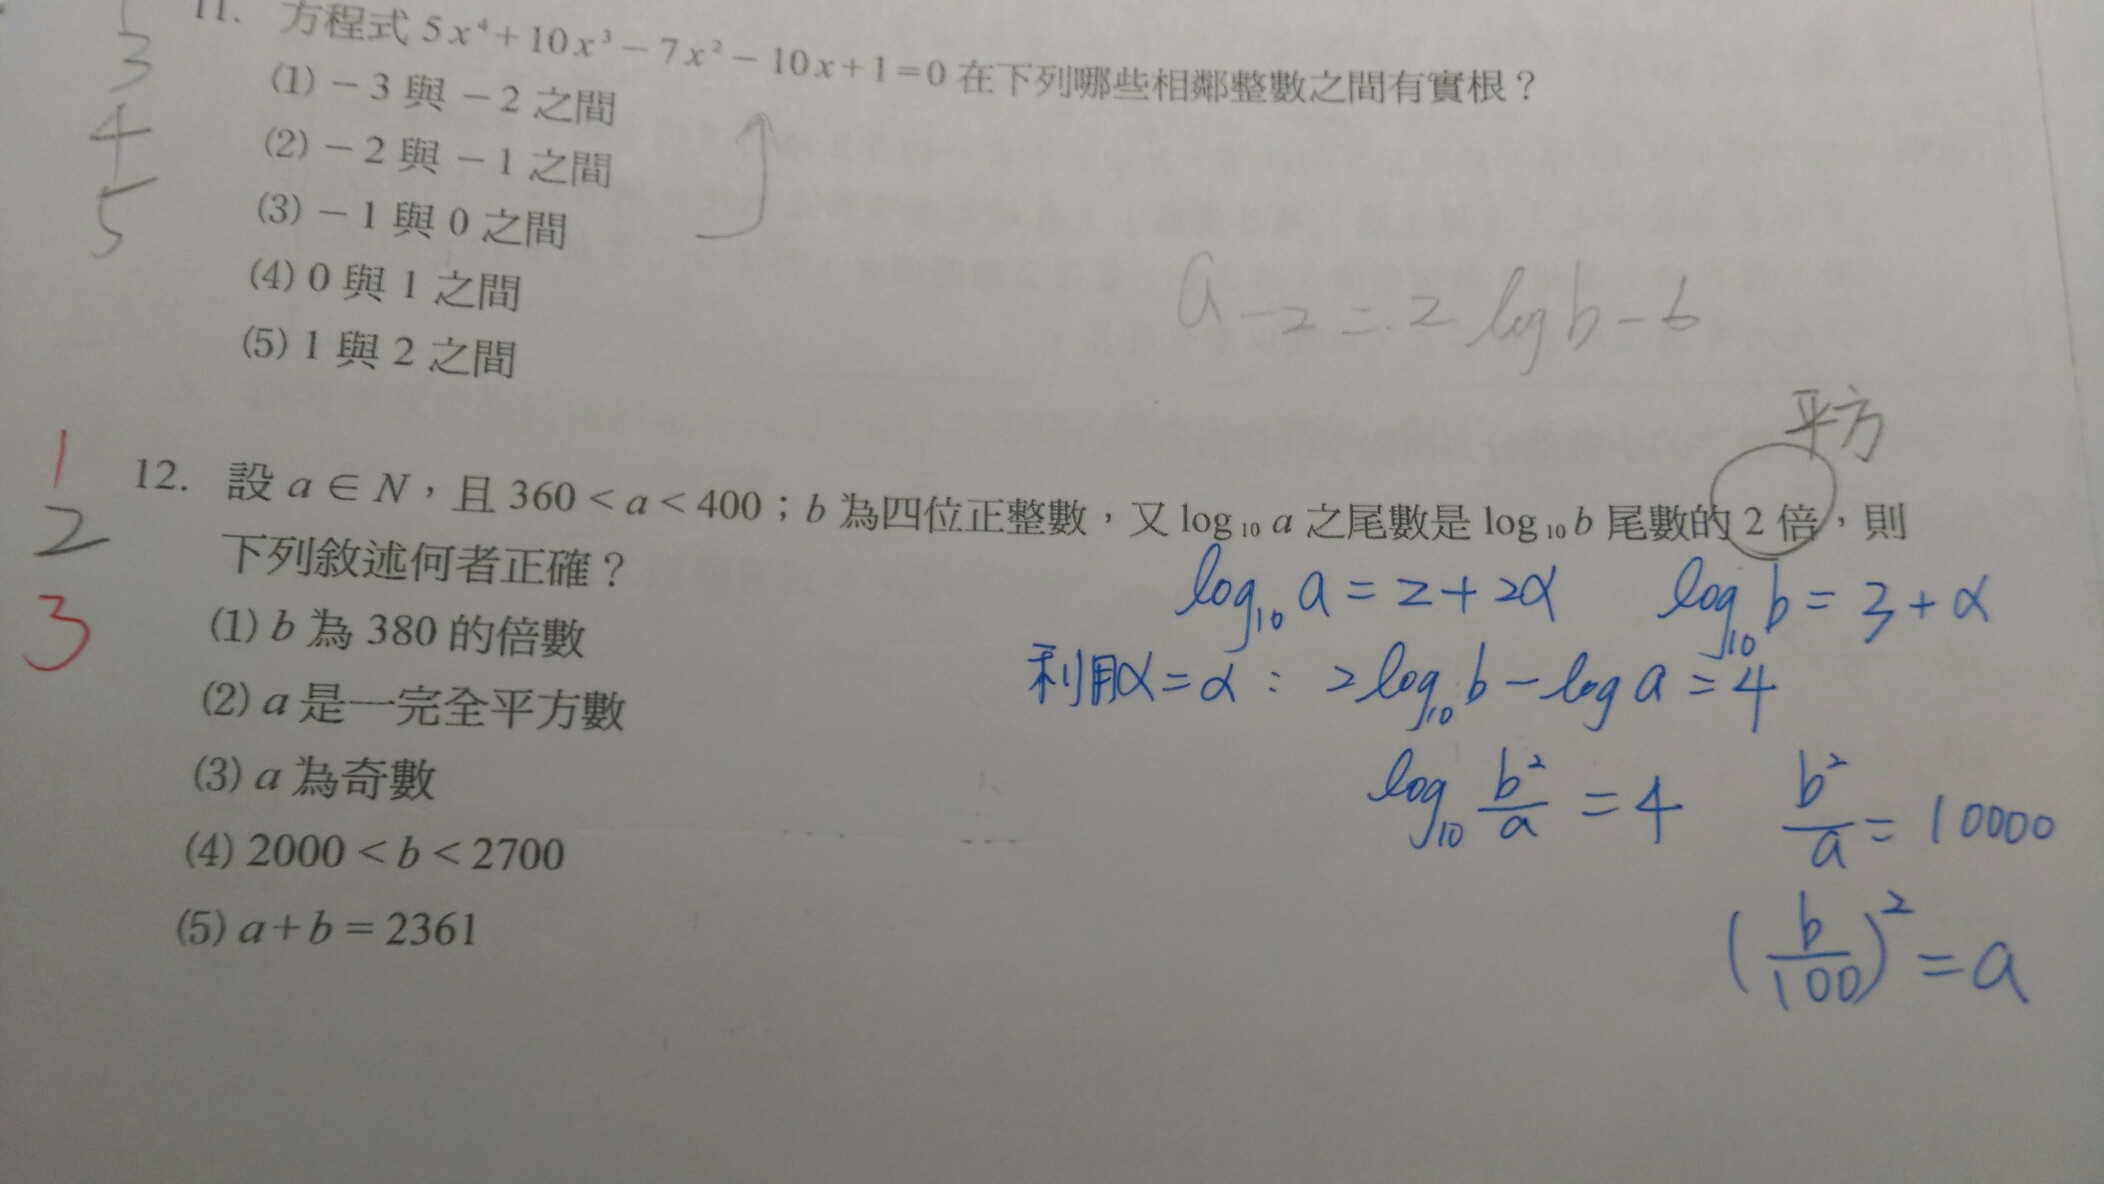 3
4
5
11. 方程式 5x⁴+10x³−7x²−10x+1=0 在下列哪些相鄰整數之間有實根？
(1) −3 與 −2 之間
(2) −2 與 −1 之間
(3) −1 與 0 之間
(4) 0 與 1 之間
(5) 1 與 2 之間
a−2=2 log b−6
平方
1
2
3
12. 設 a∈N，且 360<a<400；b 為四位正整數，又 log₁₀ a 之尾數是 log₁₀ b 尾數的 2 倍，則
下列敘述何者正確？
(1) b 為 380 的倍數
(2) a 是一完全平方數
(3) a 為奇數
(4) 2000<b<2700
(5) a+b=2361
log₁₀ a=2+2α log₁₀ b=3+α
利用α=α：2log₁₀ b−log a=4
log₁₀ b²/a=4 b²/a=10000
(b/100)²=a